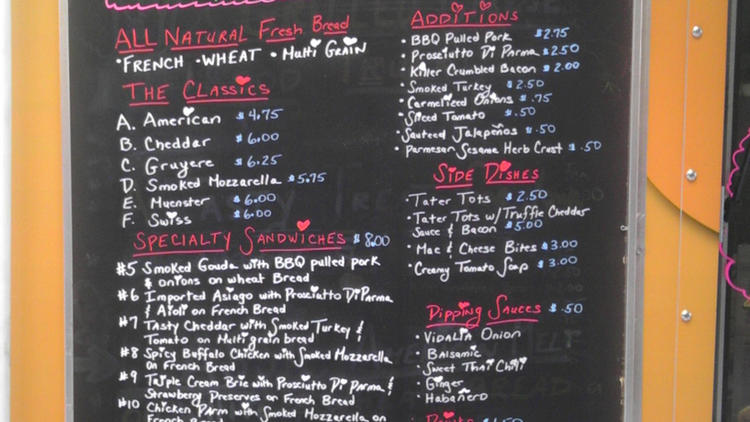 ALL NATURAL Fresh Bread
• FRENCH • WHEAT • Multi GRAIN
THE CLASSICS
A. American $4.75
B. Cheddar $6.00
C. Gruyere $6.25
D. Smoked Mozzarella $5.75
E. Muenster $6.00
F. Swiss $6.00
SPECIALTY SANDWICHES $8.00
#5 Smoked Gouda with BBQ pulled pork
& onions on wheat Bread
#6 Imported Asiago with Prosciutto Di Parma
& Aioli on French Bread
#7 Tasty Cheddar with Smoked Turkey &
Tomato on Multi grain bread
#8 Spicy Buffalo Chicken with Smoked Mozzarella
on French Bread
#9 Triple Cream Brie with Prosciutto Di Parma &
Strawberry Preserves on French Bread
#10 Chicken Parm with Smoked Mozzarella on
French Bread
ADDITIONS
• BBQ Pulled Pork $2.75
• Prosciutto Di Parma $2.50
• Killer Crumbled Bacon $2.00
• Smoked Turkey $2.50
• Carmelized Onions $.75
• Sliced Tomato $.50
• Sauteed Jalapeños $.50
• Parmesan Sesame Herb Crust $.50
SIDE DISHES
• Tater Tots $2.50
• Tater Tots w/Truffle Cheddar
Sauce & Bacon $5.00
• Mac & Cheese Bites $3.00
• Creamy Tomato Soup $3.00
Dipping Sauces $.50
• VIDALIA Onion
• Balsamic
• Sweet Thai Chili
• Ginger
• Habañero